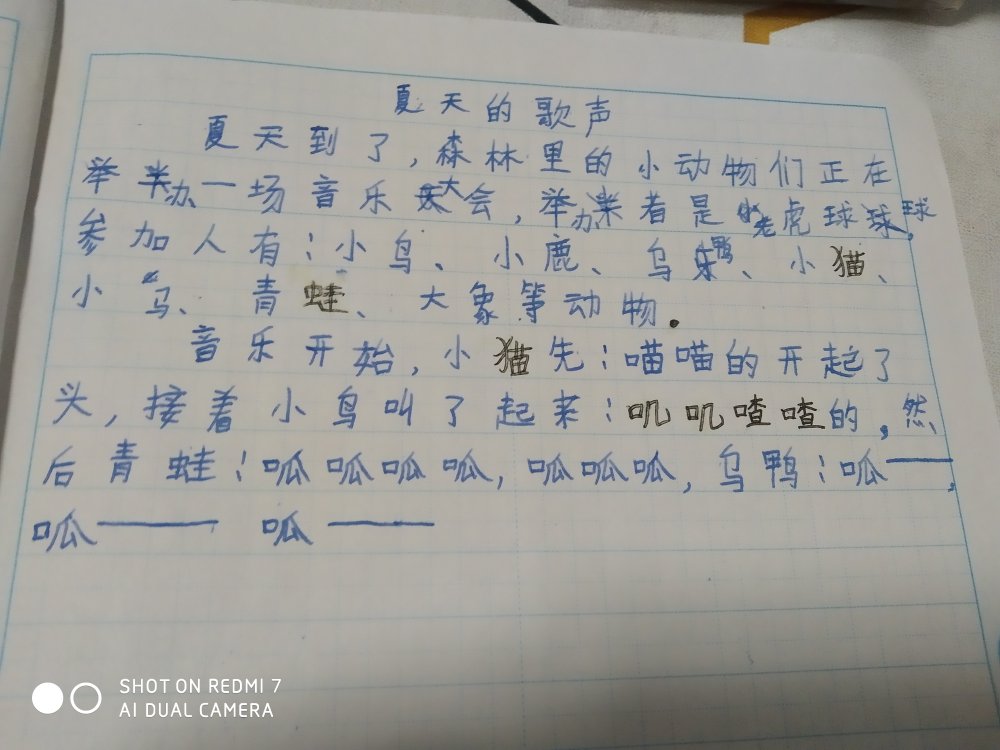 夏天的歌声
夏天到了,森林里的小动物们正在
举办一场音乐大会,举办者是老虎球球,
参加人有:小鸟、小鹿、乌鸦、小猫、
小马、青蛙、大象等动物.
音乐开始,小猫先:喵喵的开起了
头,接着小鸟叫了起来:叽叽喳喳的,然
后青蛙:呱呱呱呱,呱呱呱,乌鸭:呱——,
呱—— 呱——
SHOT ON REDMI 7
AI DUAL CAMERA